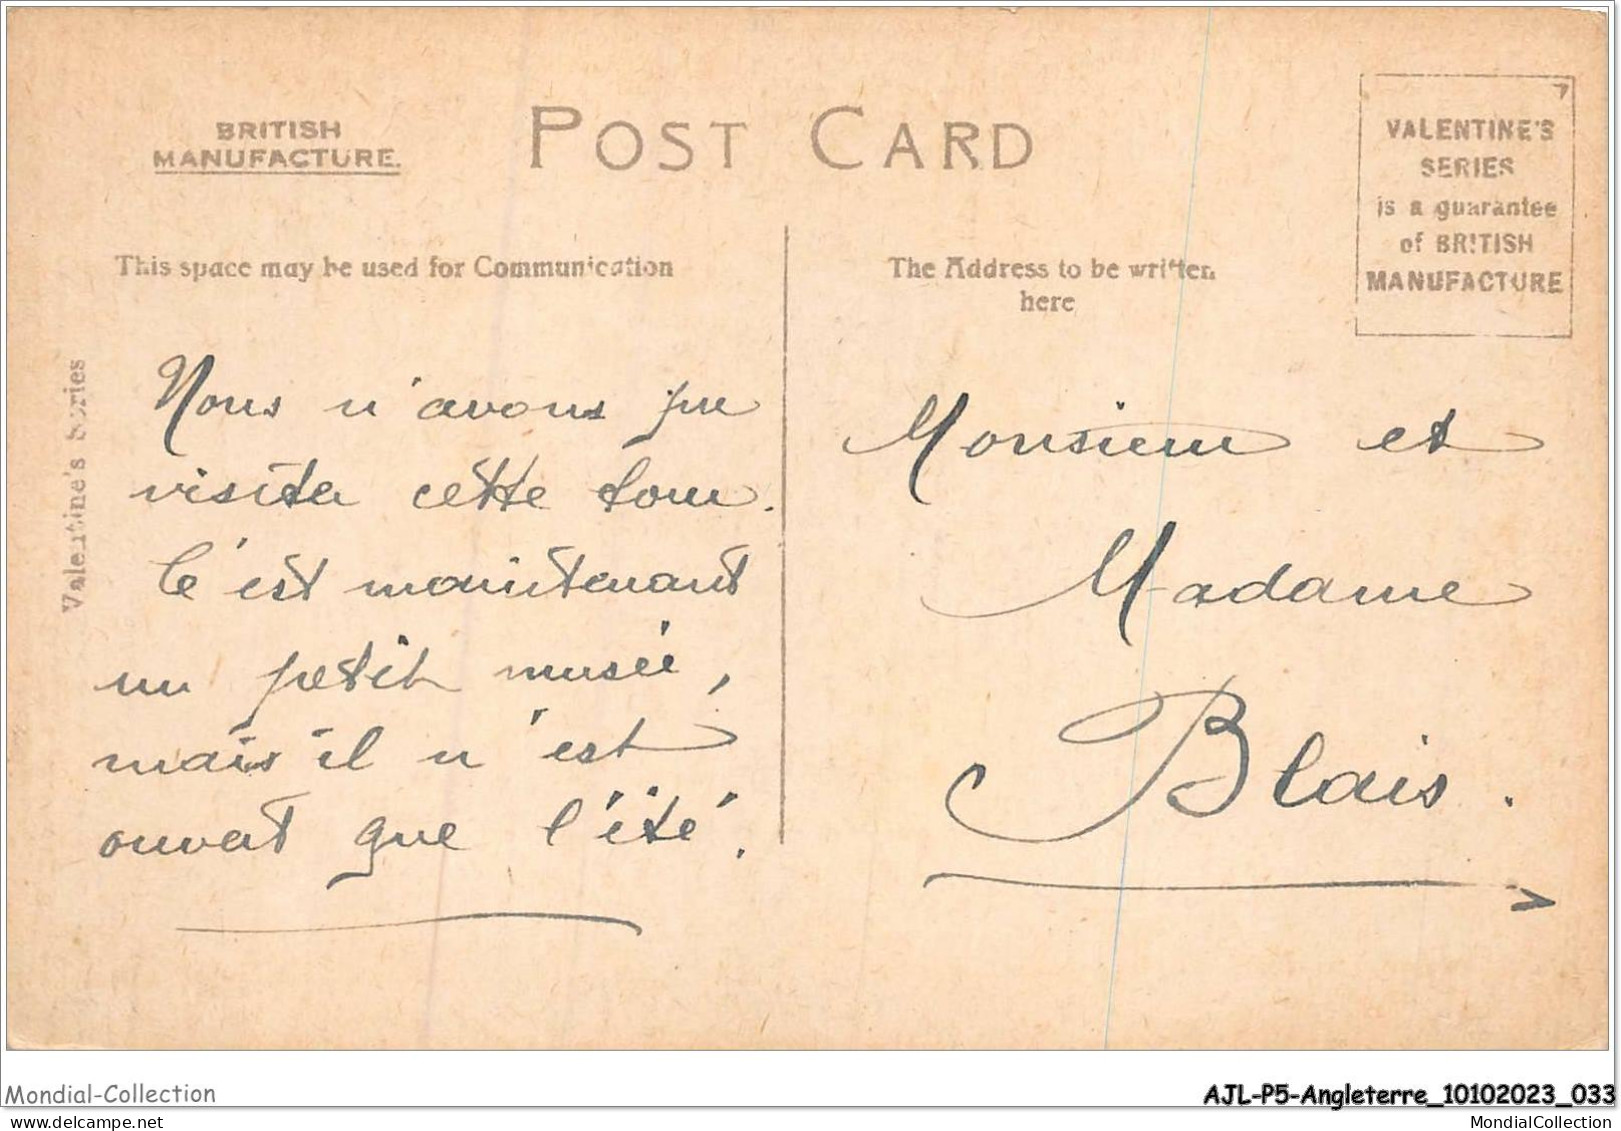 BRITISH
MANUFACTURE.
POST CARD
VALENTINE'S
SERIES
is a guarantee
of BRITISH
MANUFACTURE
This space may be used for Communication
The Address to be written
here
Valentine's Series
Nous n'avons pu
visiter cette tour.
C'est maintenant
un petit musée,
mais il n'est
ouvert que l'été.
Monsieur et
Madame
Blais.
Mondial-Collection
AJL-P5-Angleterre_10102023_033
MondialCollection